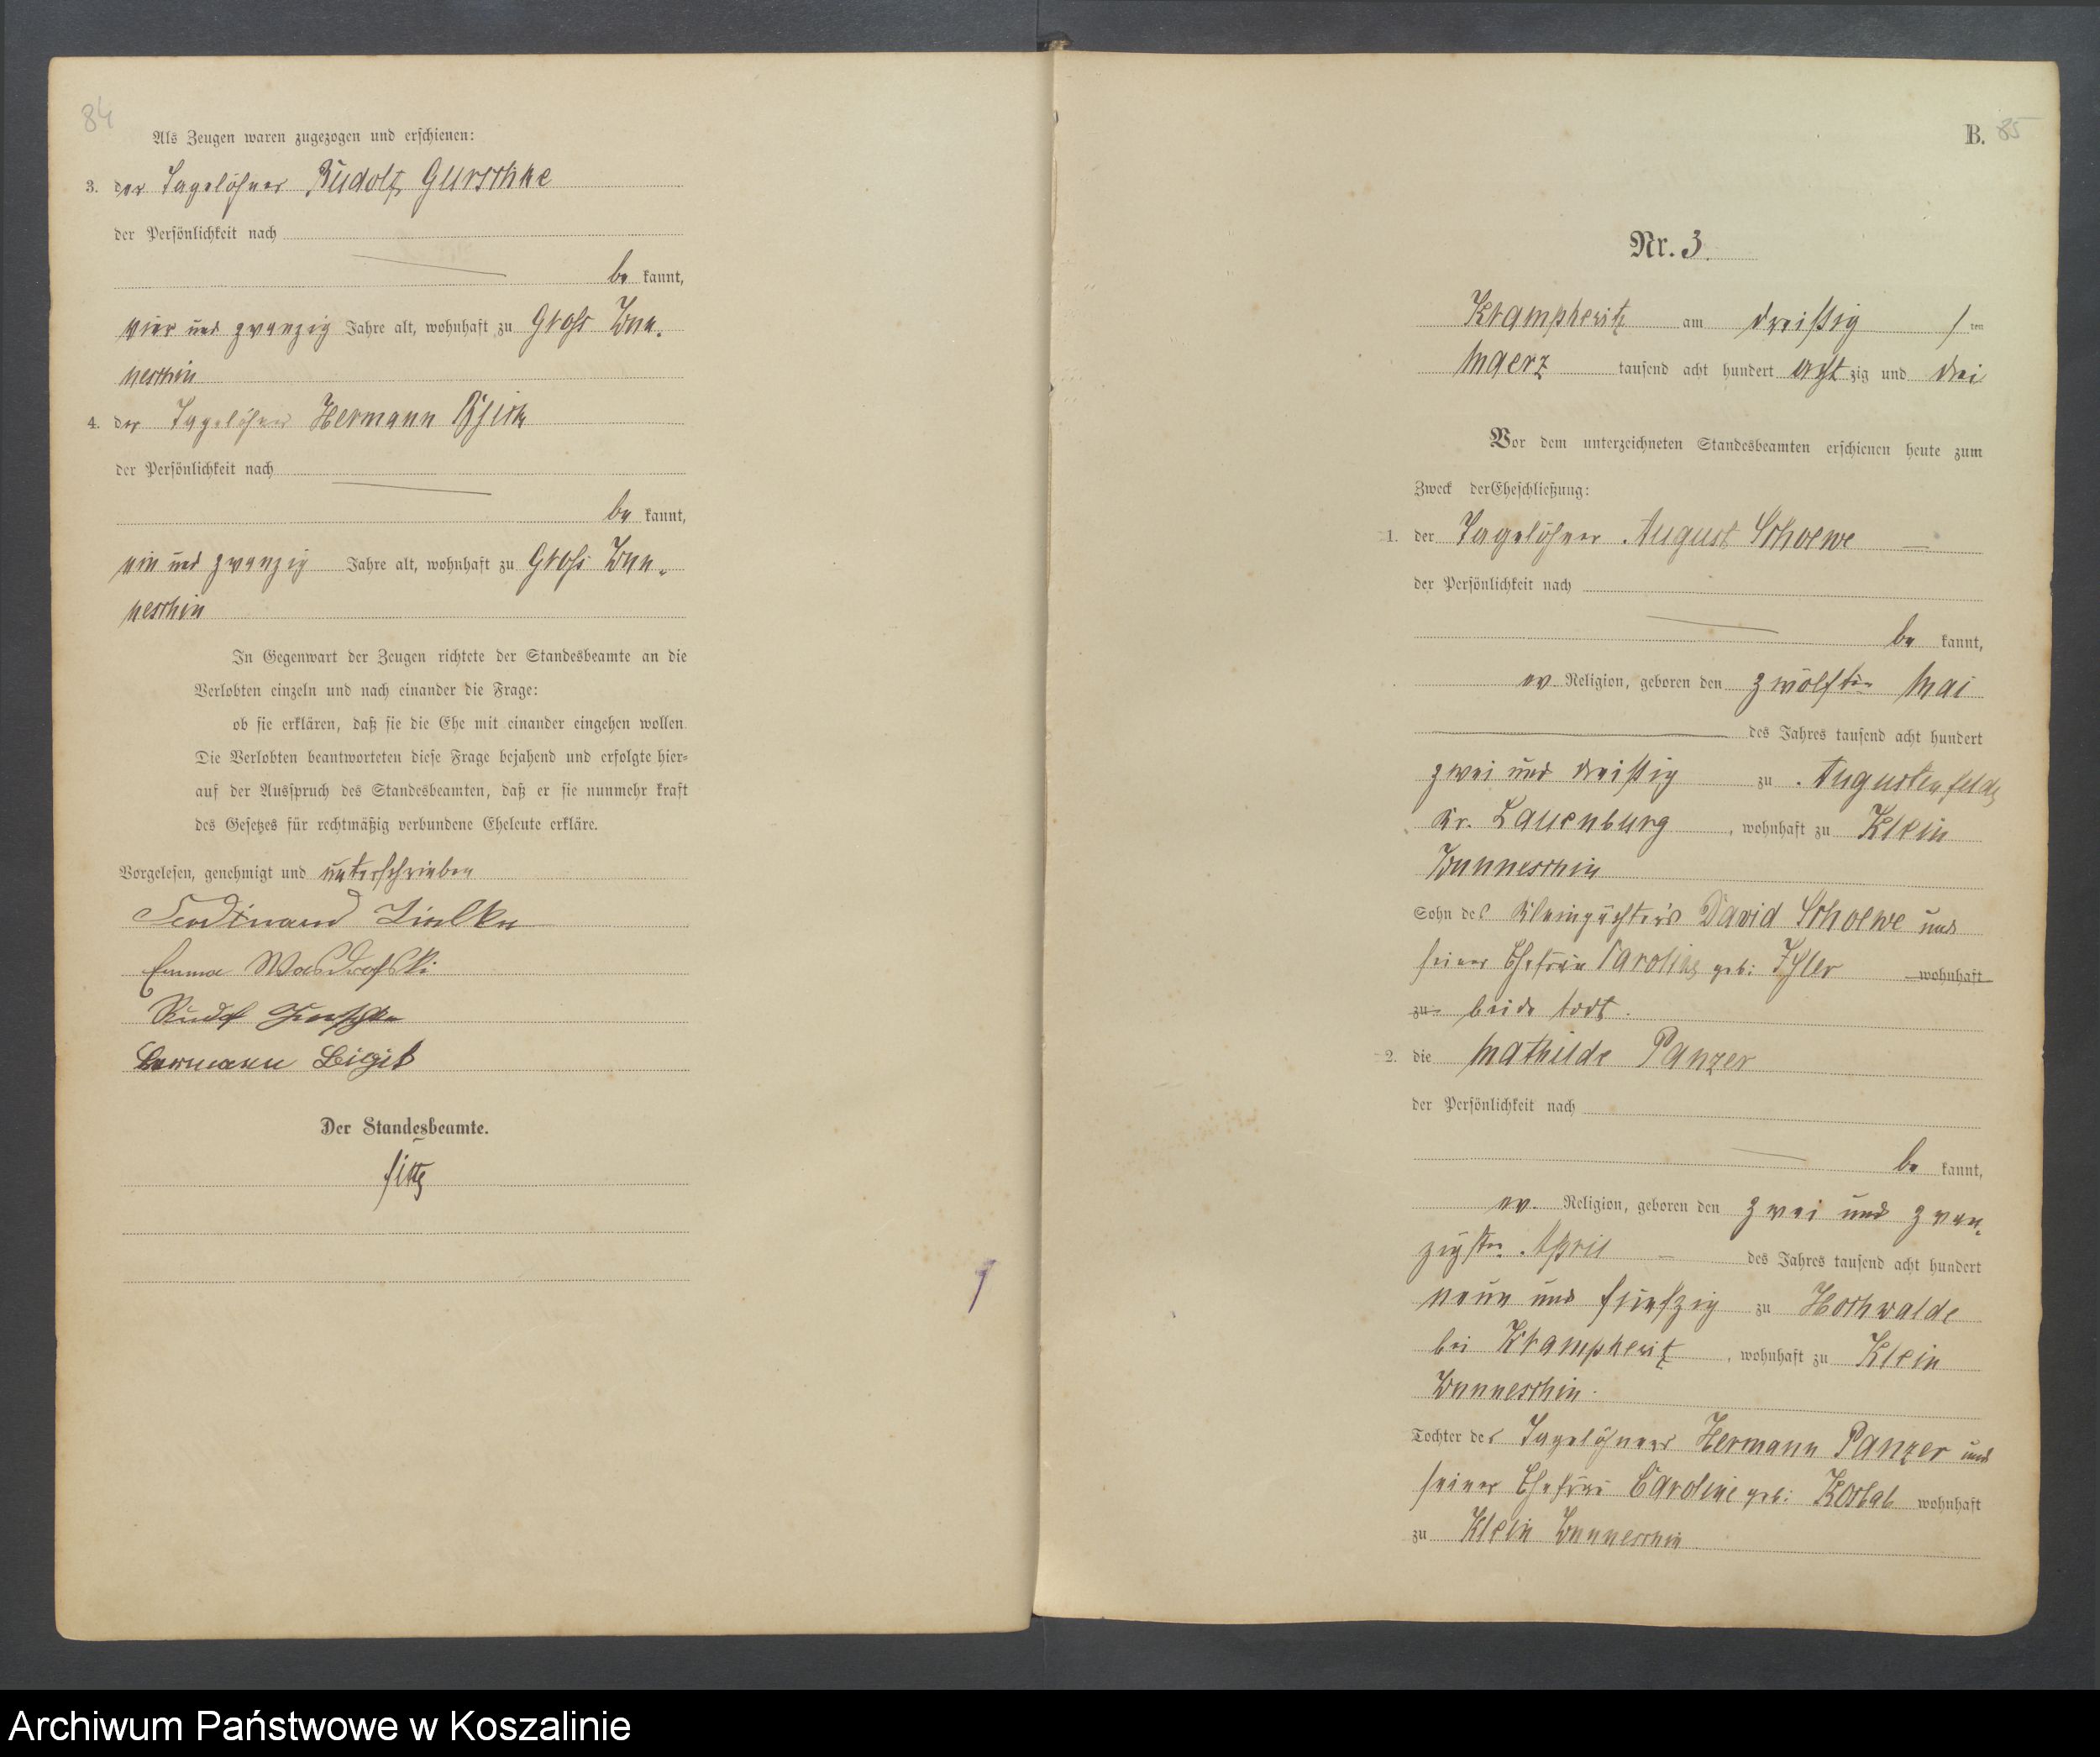 84
Als Zeugen waren zugezogen und erschienen:
3. der Tagelöhner Rudolf Gurschke
der Persönlichkeit nach
be kannt,
vier und zwanzig Jahre alt, wohnhaft zu Groß Wun-
neschin
4. der Tagelöhner Hermann
der Persönlichkeit nach
be kannt,
ein und zwanzig Jahre alt, wohnhaft zu Groß Wun-
neschin
In Gegenwart der Zeugen richtete der Standesbeamte an die
Verlobten einzeln und nach einander die Frage:
ob sie erklären, daß sie die Ehe mit einander eingehen wollen
Die Verlobten beantworteten diese Frage bejahend und erfolgte hier-
auf der Ausspruch des Standesbeamten, daß er sie nunmehr kraft
des Gesetzes für rechtmäßig verbundene Eheleute erkläre.
Vorgelesen, genehmigt und unterschrieben
Ferdinand
Emma
Rudolf Gurschke
Hermann
Der Standesbeamte.
B. 85
Nr. 3.
Krampkewitz am dreißig ten
Maerz tausend acht hundert acht zig und drei
Vor dem unterzeichneten Standesbeamten erschienen heute zum
Zweck der Eheschließung:
1. der Tagelöhner August Schoewe
der Persönlichkeit nach
be kannt,
ev. Religion, geboren den zwölften Mai
des Jahres tausend acht hundert
zwei und dreißig zu Augustenfelde
Kr. Lauenburg, wohnhaft zu Klein
Wunneschin
Sohn des Kleinpächters David Schoewe und
seiner Ehefrau Caroline geb: wohnhaft
zu beide todt.
2. die Mathilde Panzer
der Persönlichkeit nach
be kannt,
ev. Religion, geboren den zwei und zwan-
zigsten April des Jahres tausend acht hundert
neun und fünfzig zu Hochwalde
bei Krampkewitz, wohnhaft zu Klein
Wunneschin.
Tochter des Tagelöhners Hermann Panzer und
seiner Ehefrau Caroline geb: wohnhaft
zu Klein Wunneschin
Archiwum Państwowe w Koszalinie